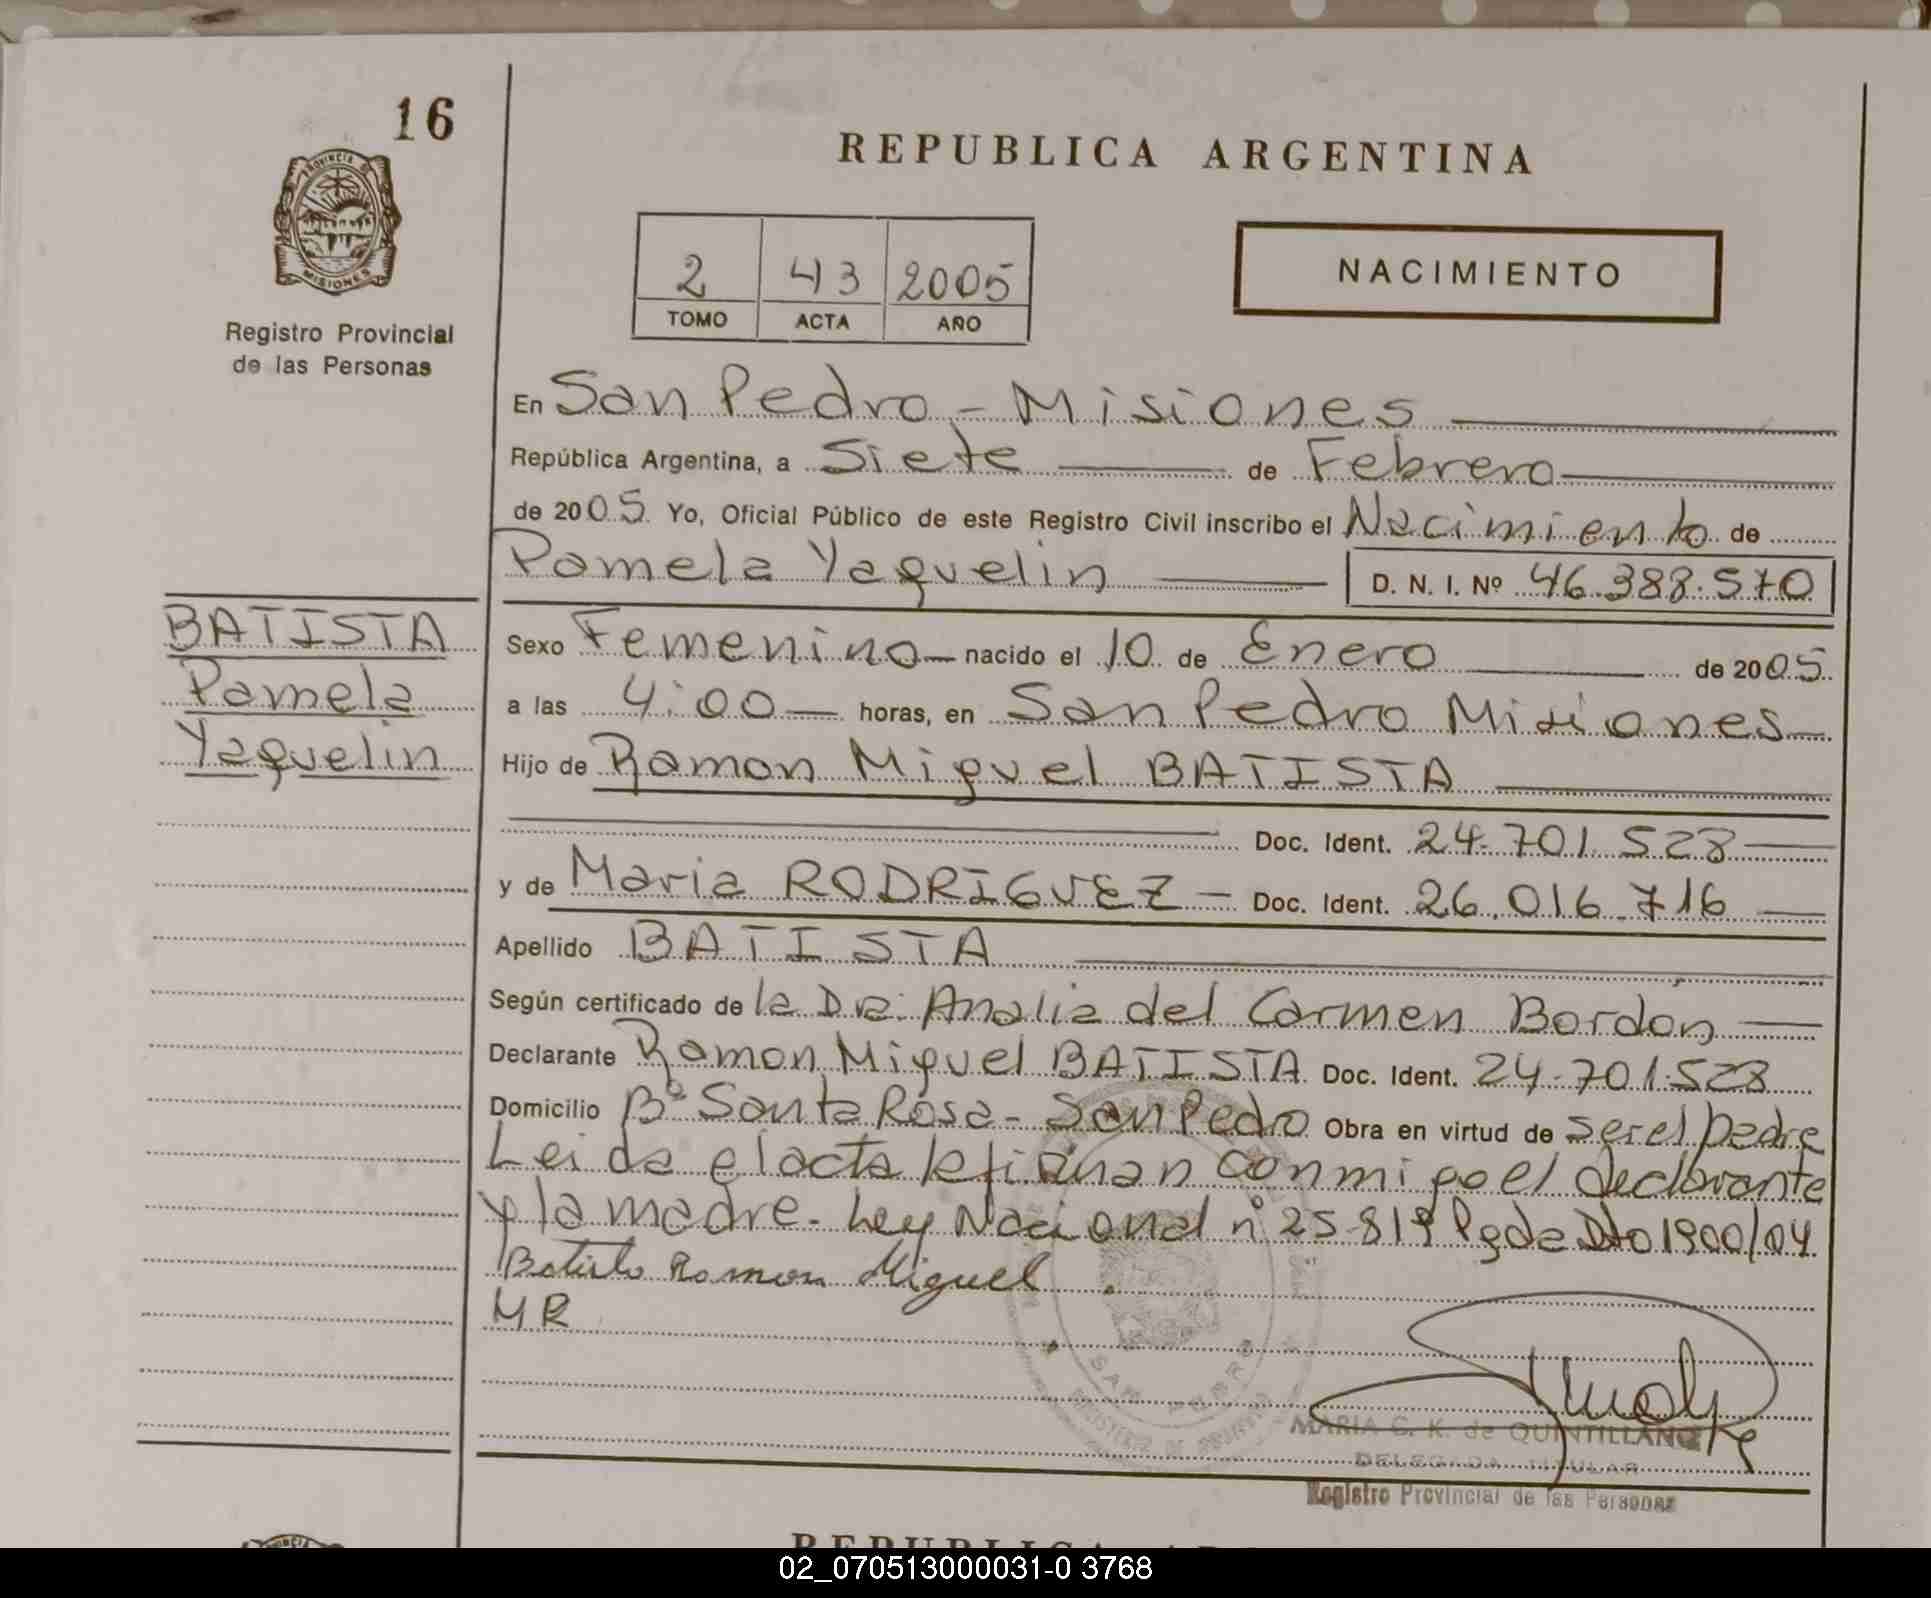 16
PROVINCIA DE
MISIONES
Registro Provincial
de las Personas
REPUBLICA ARGENTINA
2 43 2005
TOMO ACTA AÑO
NACIMIENTO
En San Pedro - Misiones
República Argentina, a Siete de Febrero
de 2005 Yo, Oficial Público de este Registro Civil inscribo el Nacimiento de
Pamela Yaquelin D. N. I. Nº 46.388.570
BATISTA
Pamela
Yaquelin
Sexo Femenino nacido el 10 de Enero de 2005
a las 4:00 horas, en San Pedro Misiones
Hijo de Ramon Miguel BATISTA
Doc. Ident. 24.701.528
y de Maria RODRIGUEZ Doc. Ident. 26.016.716
Apellido BATISTA
Según certificado de la Dra. Analia del Carmen Bordón
Declarante Ramon Miguel BATISTA Doc. Ident. 24.701.528
Domicilio Bº Santa Rosa - San Pedro Obra en virtud de ser el padre
Leida el acta la firman conmigo el declarante
y la madre. Ley Nacional nº 25.819 Pgda Dto 1900/04
Batista Ramon Miguel
MR
SAN PEDRO
MINISTERIO DE GOBIERNO
MARIA C. K. de QUINTILLAN
DELEGADA TITULAR
Registro Provincial de las Personas
REPUBLICA
02_070513000031-0 3768